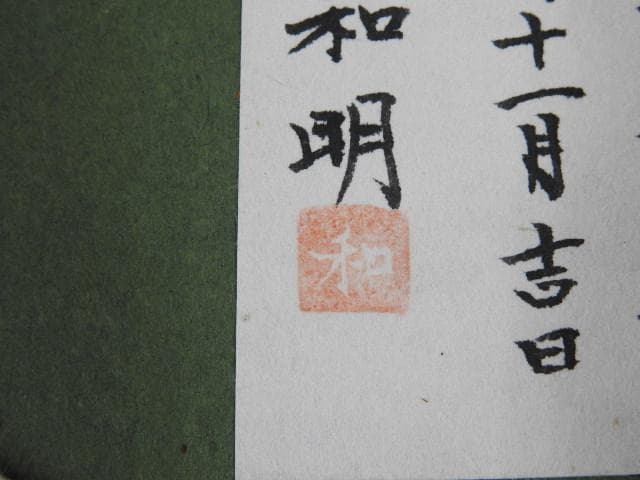 十一月吉日
和明
和